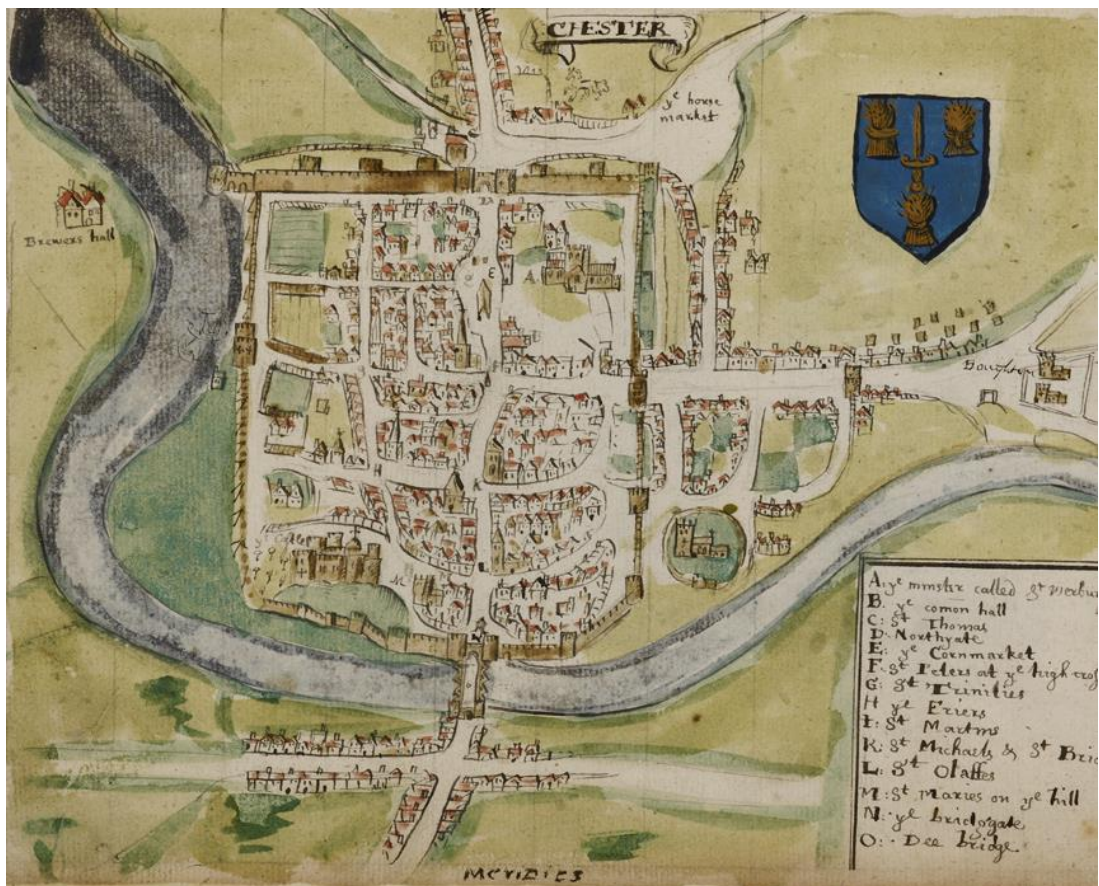 CHESTER
ye horse
market
Brewers hall
D
E
A
Boughton
H
K
M
A: ye minster called St werbu
B. ye comon hall
C: St Thomas
D. Northgate
E: ye Cornmarket
F. St Peters at ye high cros
G: St Trinities
H ye Friers
I: St Martins
K: St Michaels & St Brid
L: St Olaffes
M: St Maries on ye hill
N: ye bridggate
O: Dee bridge
MERIDIES